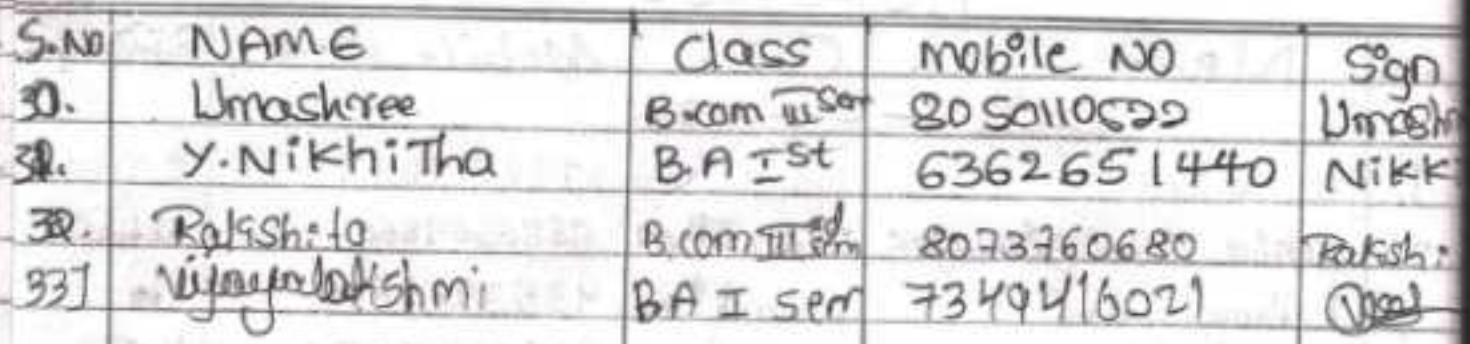 S.No NAME Class Mobile NO Sign
30. Umashree B.com III Sem 8050110522 Umash
31. Y.Nikhitha B.A Ist 6362651440 Nikk
32. Rakshita B.com IIIrd Sem 8073760680 Rakshi
33] Vijayalakshmi BA I Sem 7349416021